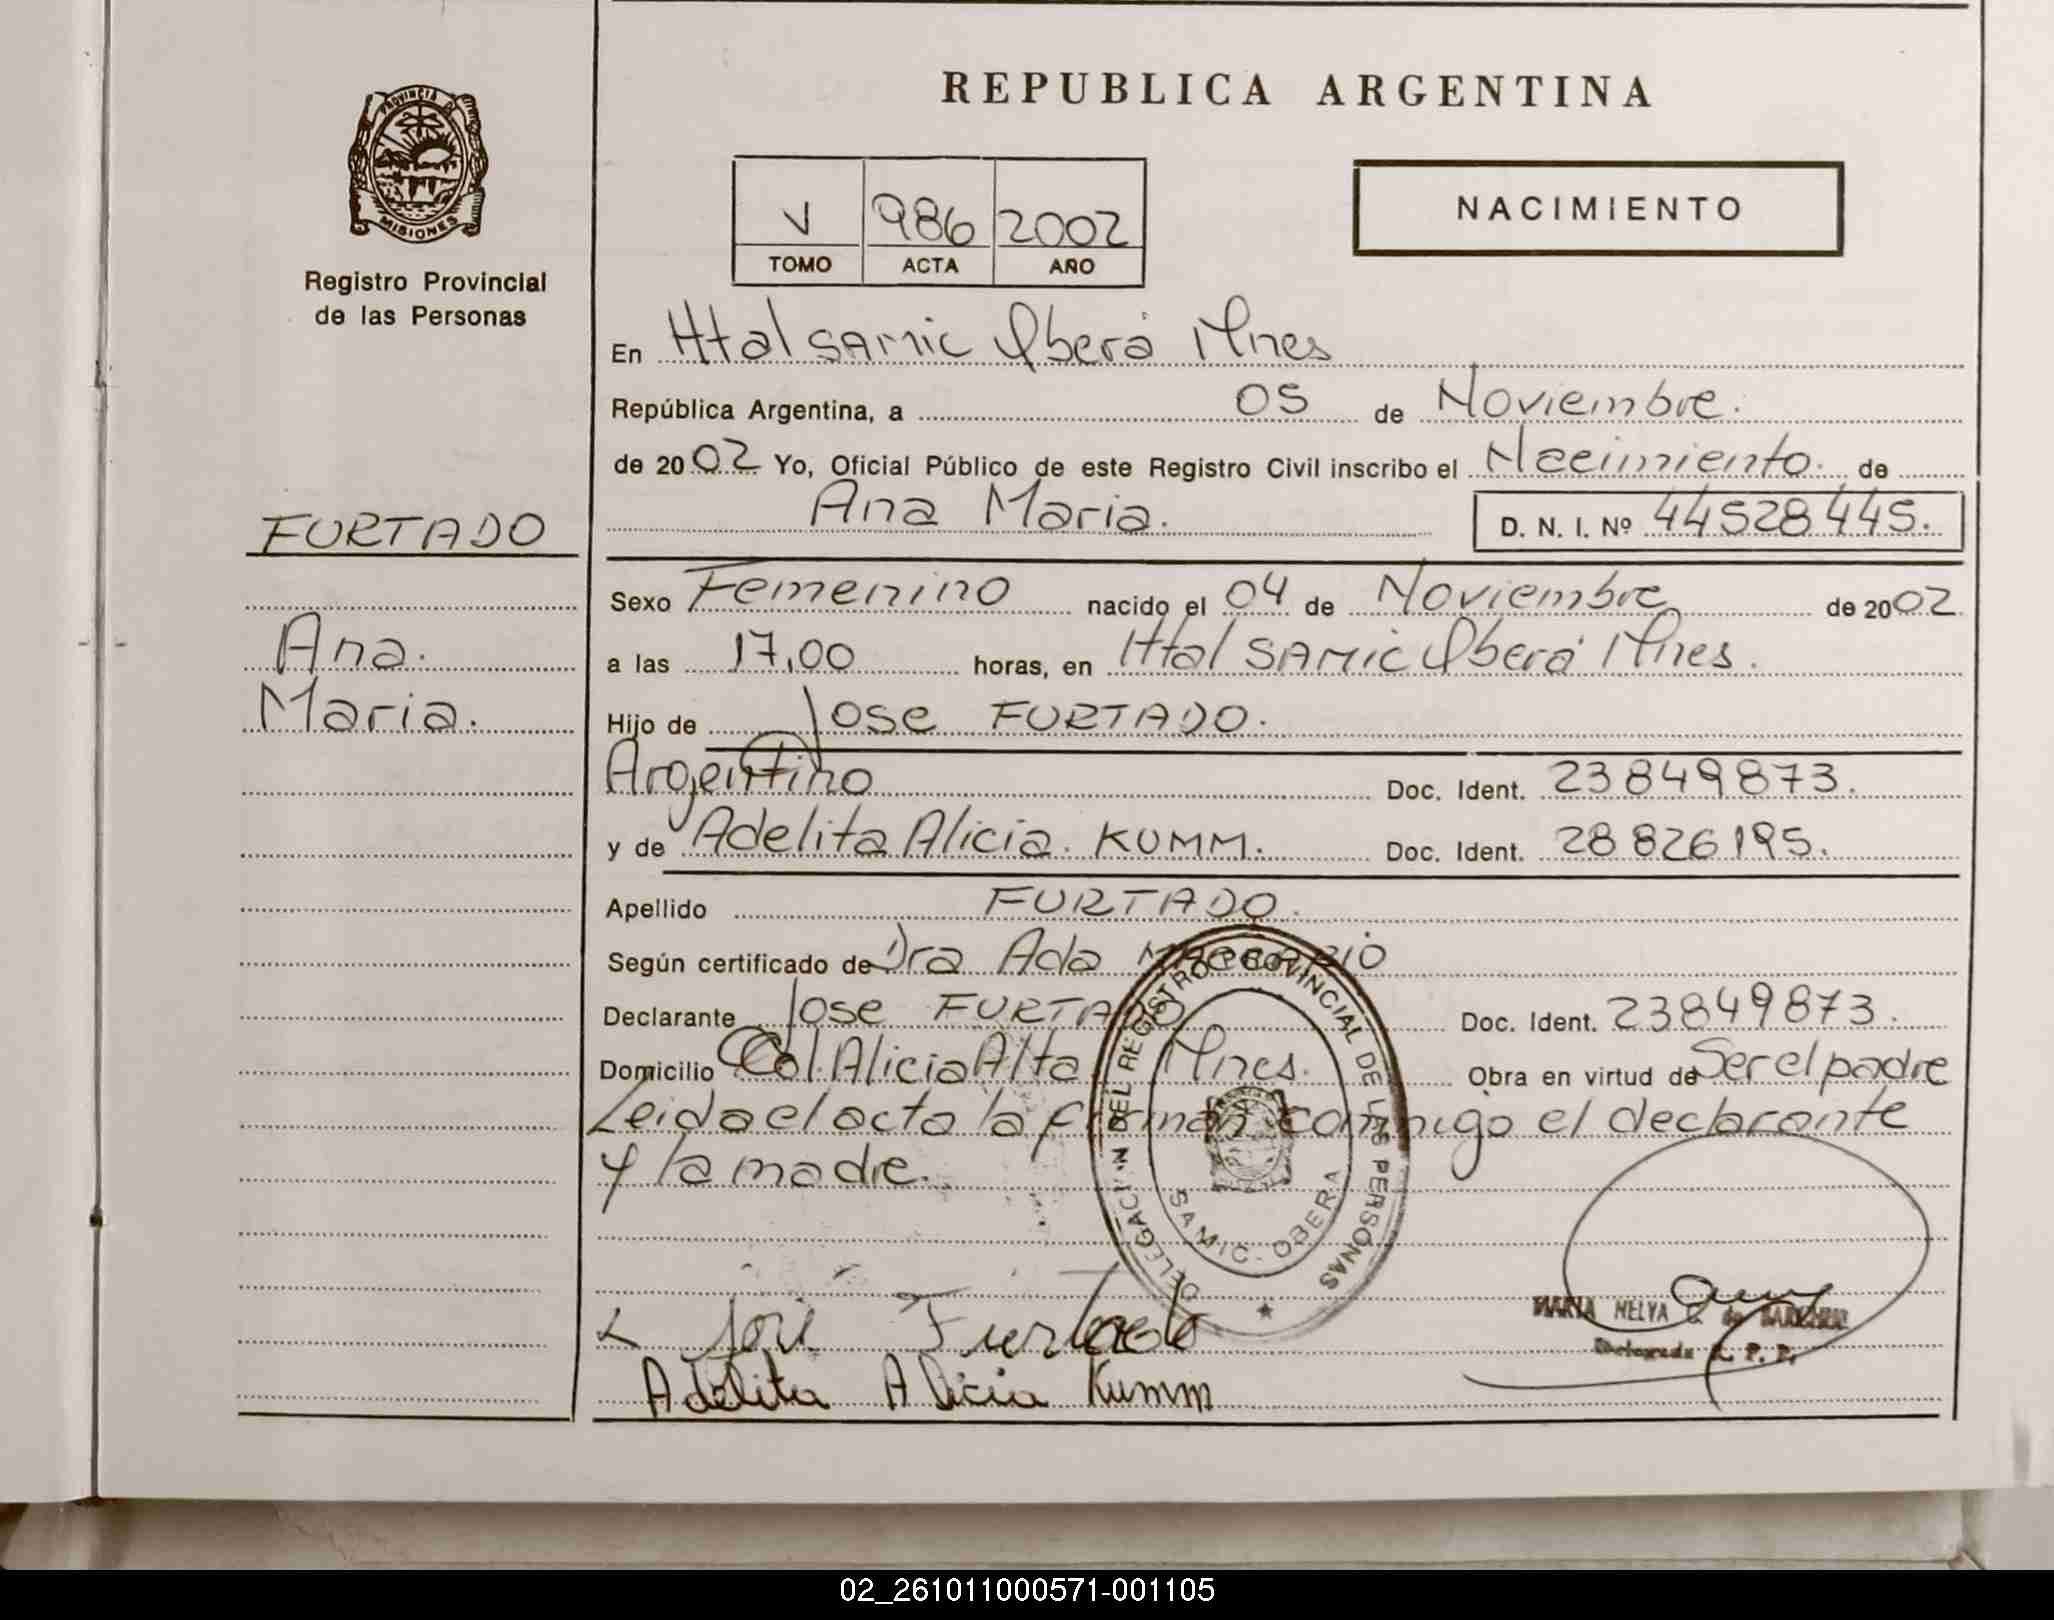 REPUBLICA ARGENTINA
PROVINCIA D
MISIONES
Registro Provincial
de las Personas
V 986 2002
TOMO ACTA AÑO
NACIMIENTO
En Htal SAMIC Oberá Mnes
República Argentina, a 05 de Noviembre.
de 2002 Yo, Oficial Público de este Registro Civil inscribo el Nacimiento. de
Ana Maria. D. N. I. Nº 44528445.
FURTADO
Ana.
Maria.
Sexo Femenino nacido el 04 de Noviembre de 2002
a las 17,00 horas, en Htal SAMIC Oberá Mnes.
Hijo de Jose FURTADO.
Argentino Doc. Ident. 23849873.
y de Adelita Alicia. KUMM. Doc. Ident. 28826195.
Apellido FURTADO.
Según certificado de Dra Ada
Declarante Jose FURTADO Doc. Ident. 23849873.
Domicilio Col. Alicia Alta Mnes. Obra en virtud de Ser el padre
Leida el acta la firman conmigo el declarante
y la madre.
DELEGACION DEL REGISTRO PROVINCIAL DE LAS PERSONAS
SAMIC. OBERA
José Furtado
MARIA NELYA de
Delegada R. P. P.
Adelita Alicia Kumm
02_261011000571-001105